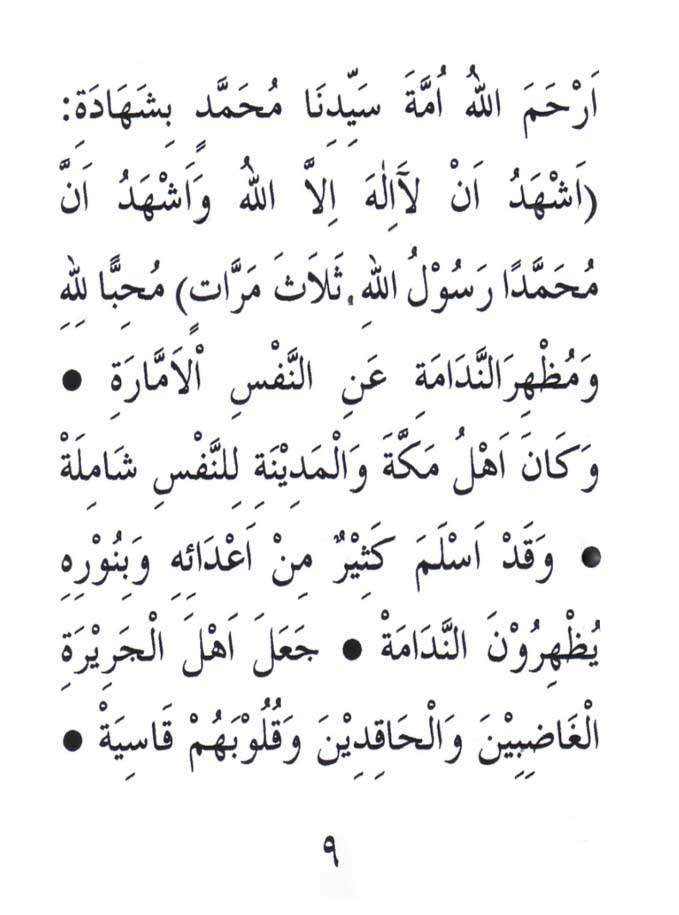 اَرْحَمَ اللهُ اُمَّةَ سَيِّدِنَا مُحَمَّدٍ بِشَهَادَةِ:
(اَشْهَدُ اَنْ لَآاِلٰهَ اِلاَّ اللهُ وَاَشْهَدُ اَنَّ
مُحَمَّدًا رَسُوْلُ اللهِ. ثَلاَثَ مَرَّاتٍ) مُحِبًّا لِلهِ
وَمُظْهِرَالنَّدَامَةِ عَنِ النَّفْسِ اْلاَمَّارَةِ ●
وَكَانَ اَهْلُ مَكَّةَ وَالْمَدِيْنَةِ لِلنَّفْسِ شَامِلَةْ
● وَقَدْ اَسْلَمَ كَثِيْرٌ مِنْ اَعْدَائِهِ وَبِنُوْرِهِ
يُظْهِرُوْنَ النَّدَامَةْ ● جَعَلَ اَهْلَ الْجَرِيْرَةِ
الْغَاضِبِيْنَ وَالْحَاقِدِيْنَ وَقُلُوْبَهُمْ قَاسِيَةْ ●
٩